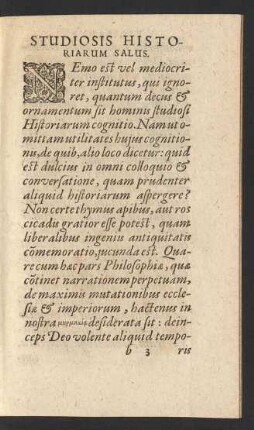 STUDIOSIS HISTO-
RIARUM SALUS.
NEmo est vel mediocri-
ter institutus, qui igno-
ret, quantum decus &
ornamentum sit hominis studiosi
Historiarum cognitio. Nam ut o-
mittam utilitates hujus cognitio-
nu, de quib, alio loco dicetur: quid
est dulcius in omni colloquio &
conversatione, quam prudenter
aliquid historiarum aspergere?
Non certe thymus apibus, aut ros
cicadu gratior esse potest, quam
liberalibus ingeniu antiquitatis
cõmemoratio, jucunda est. Qua-
re cum hæc pars Philosophiæ, quæ
cõtinet narrationem perpetuam,
de maximu mutationibus eccle-
siæ & imperiorum, hactenus in
nostra desiderata sit: dein-
ceps Deo volente aliquid tempo-
b 3 ris